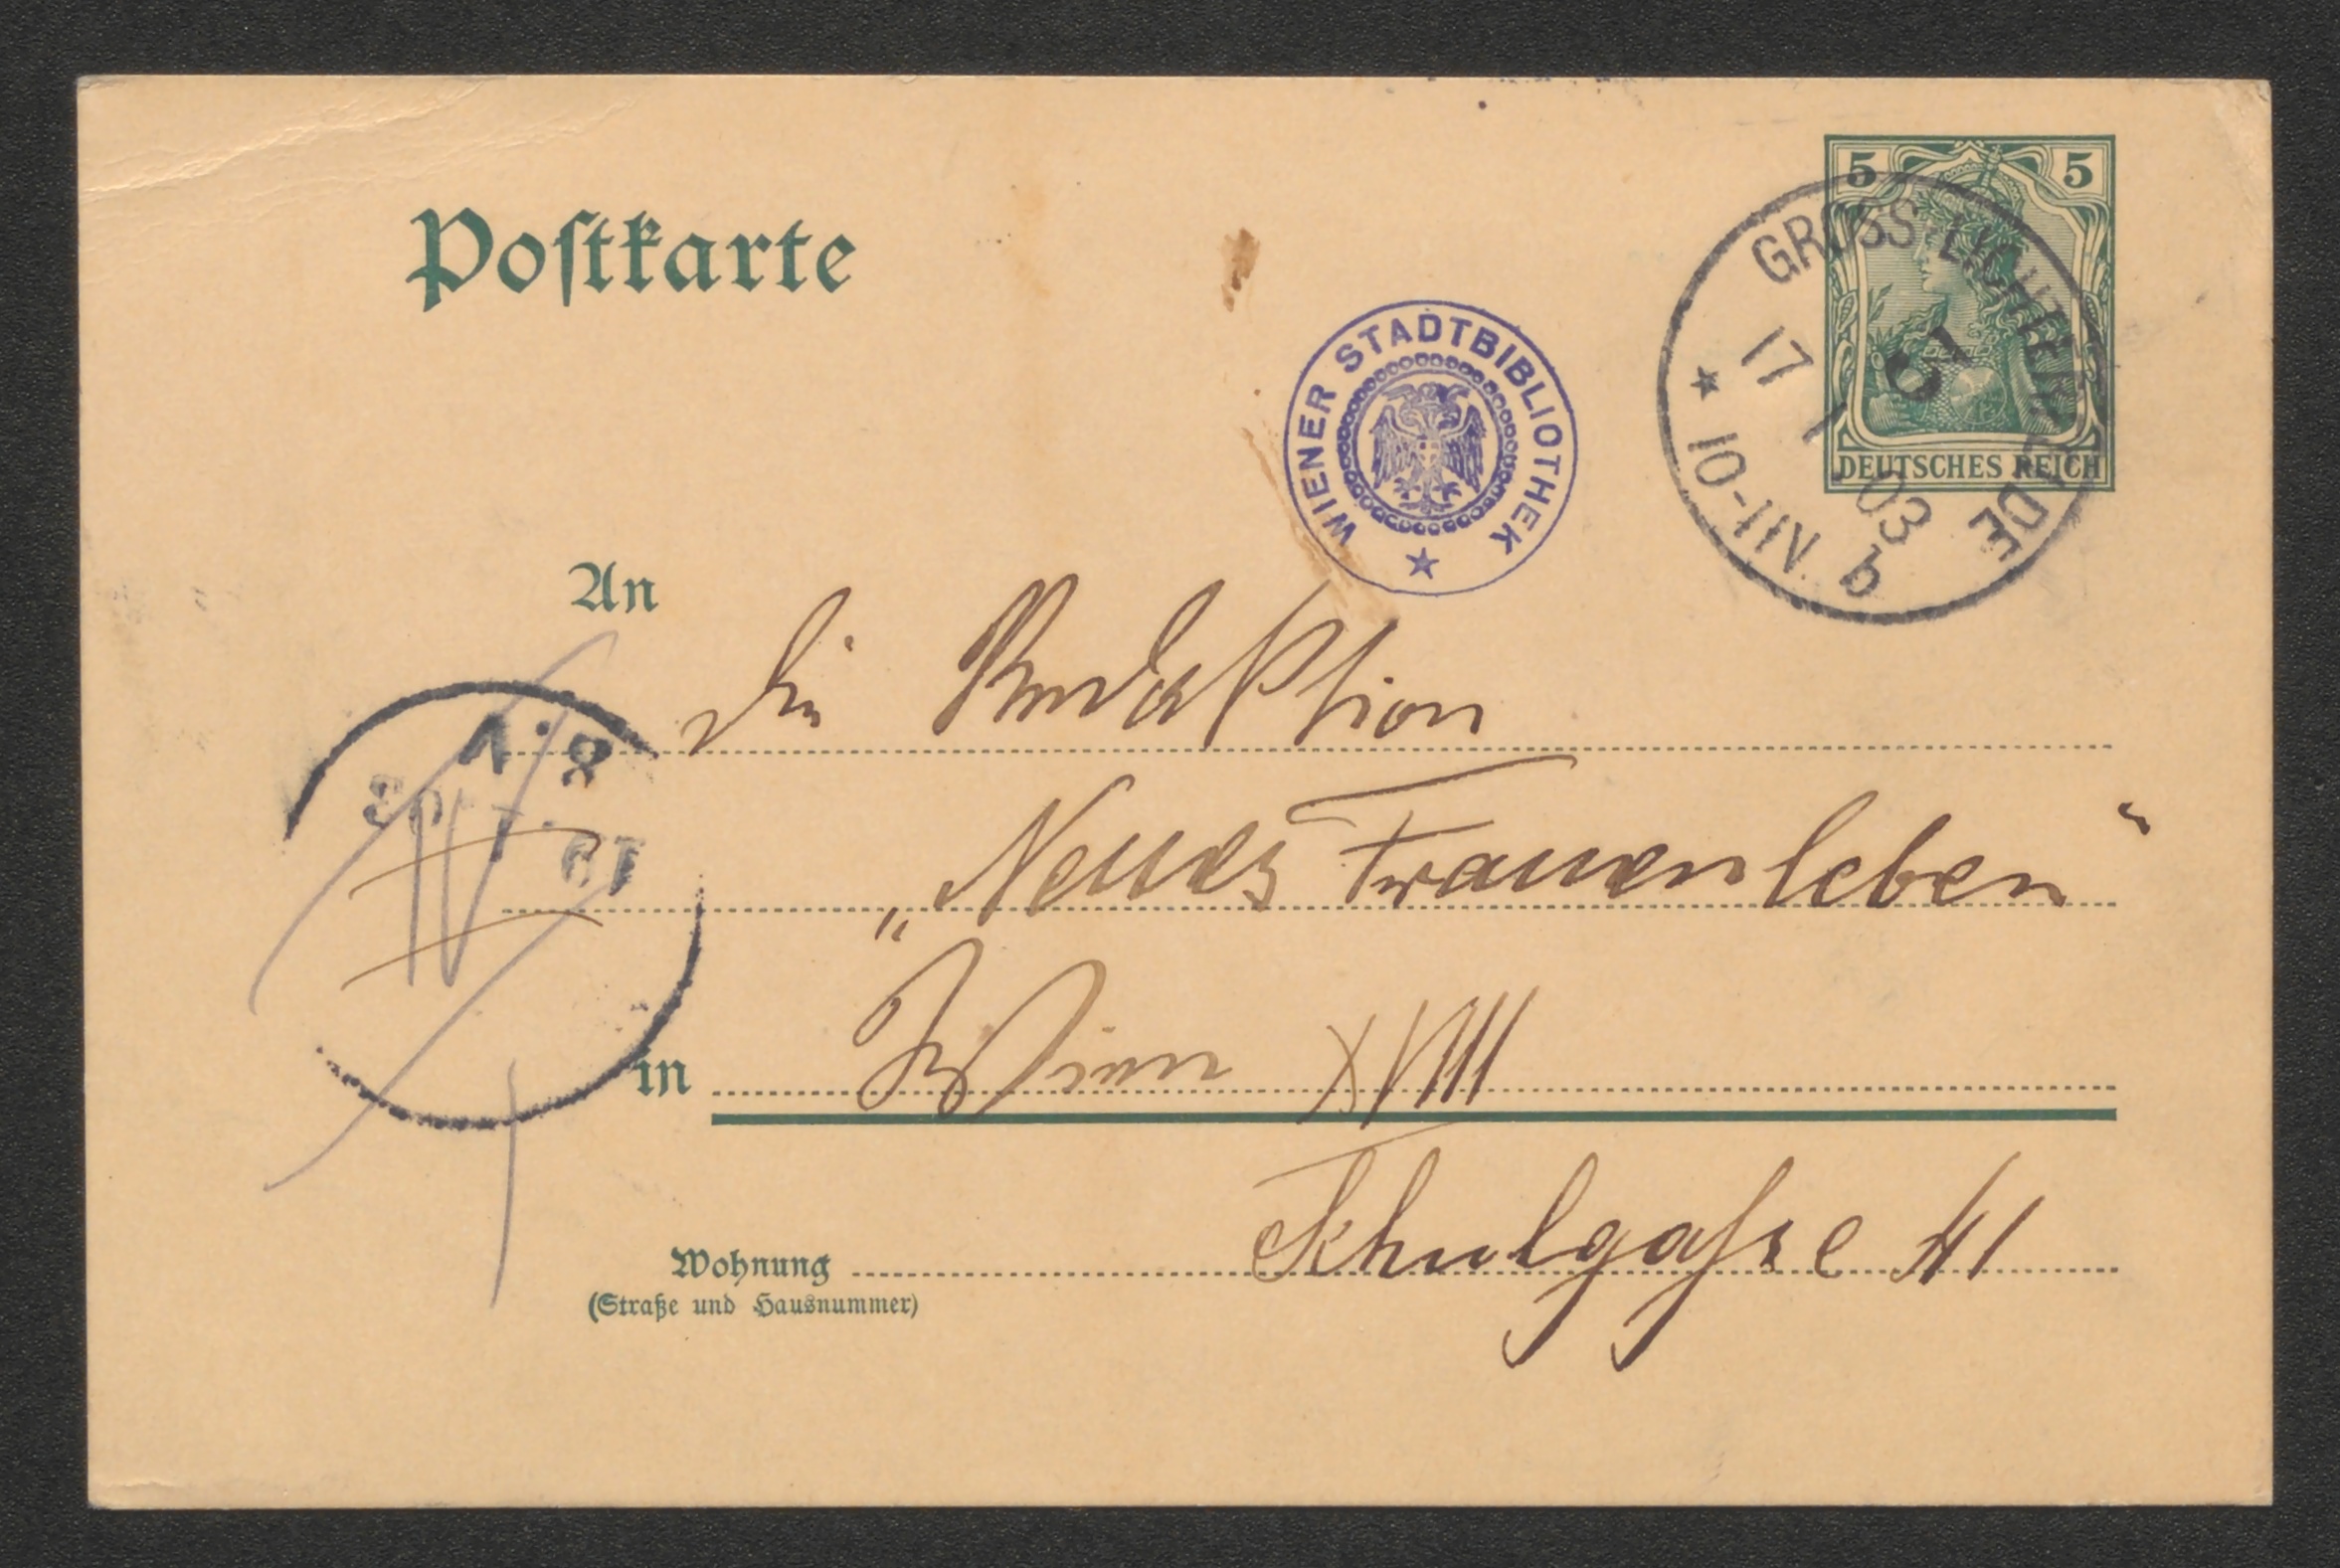 Postkarte
5 5
DEUTSCHES REICH
GROSS-LICHTERFELDE
5
17
1
03
10-11N. b
WIENER STADTBIBLIOTHEK
An
die Redaktion
„Neues Frauenleben“
in Wien XVIII
Wohnung Schulgasse 41
(Straße und Hausnummer)